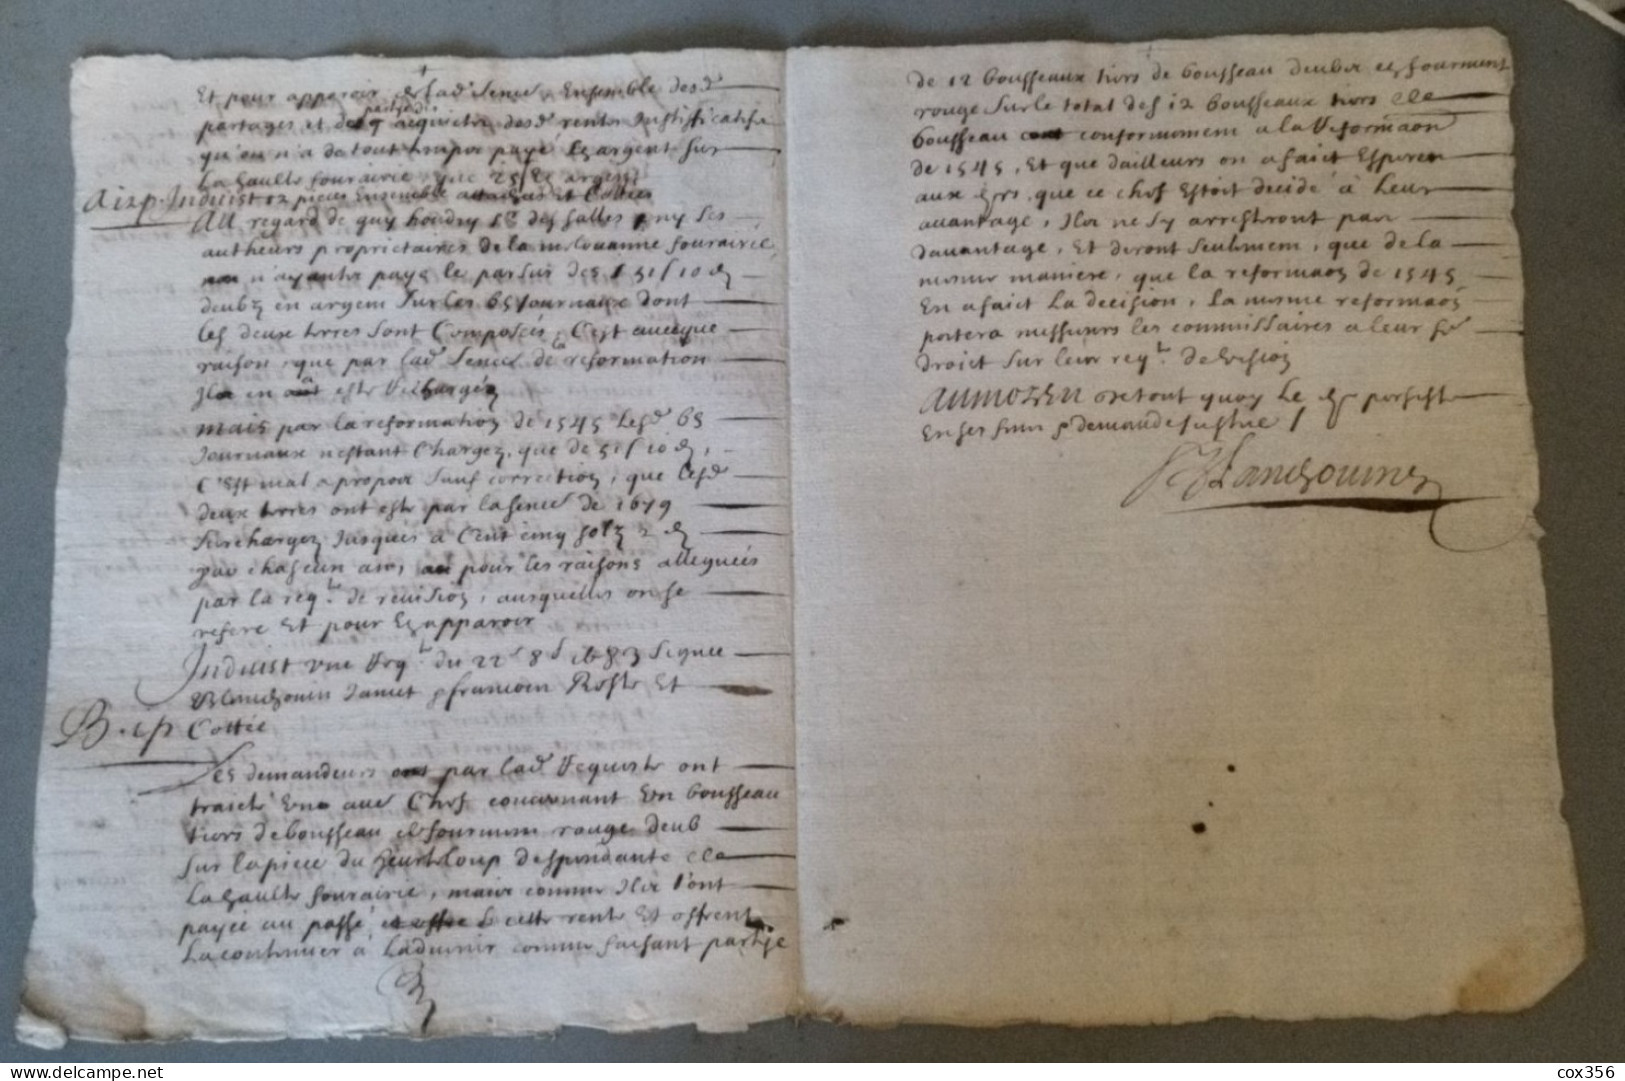 Et pour apparoir de lad Sence, Ensemble desd
partages et de acquictz desd rentes Justifficatifs
qu'on n'a de tout temps payé En argent sur
La haulte fourairie, que 25 s En argent
A 12 p. Induist 12 pieces Ensemble attachés et Cottées
Au regard de guy houdry Sr des salles, ny ses
autheurs proprietaires de la mesouanne fourairie
n'ayantz payé le parsus des 51 s 10 d
deubz en argent Sur les 65 Journaux dont
les deux terres sont Composées, C'est auecque
raison, que par lad Sence de reformation
Ilz en ont esté deschargéz
mais par la reformation de 1545 Lesd 65
Journaux n'estant Chargez, que de 51 s 10 d,
C'Est mal a propos sauf correction, que lesd
deux terres ont esté par la sence de 1679
surchargez Jusques à Cent cinq solz 2 d
par chascun an, pour les raisons alleguées
par la reqte de reuision, ausquelles on se
refere Et pour En apparoir
Induist vne reqte du 22e 8b 1683 Signee
Blanchouin Janut francois Roste Et
B. 1 p Cottée
Les demandeurs par lad requeste ont
traicté vn auc Chef concernant vn bousseau
tiers de bousseau de fourment rouge deub
sur la piece du heurteloup despendante de
La haulte fourairie, mais comme Ilz l'ont
payée au passé, cette rente Et offrent
La continuer à Laduenir comme faisant partye
de 12 bousseaux tiers de bousseau deubz en fourment
rouge sur le total des 12 bousseaux tiers de
bousseau conformement a la reformaon
de 1545, Et que d'ailleurs on a faict Esperer
aux que ce chef Estoit decidé à Leur
auantage, Ilz ne s'y arresteront pas
dauantage, Et diront seulement, que de la
mesme maniere, que la reformaon de 1545
En a faict La decision, La mesme reformaon
portera messieurs les commissaires a leur fe
droict sur leur reqte de reuision
AUMOYEN de tout quoy Le persiste
En ses fins demande Justice /
Blanchouin